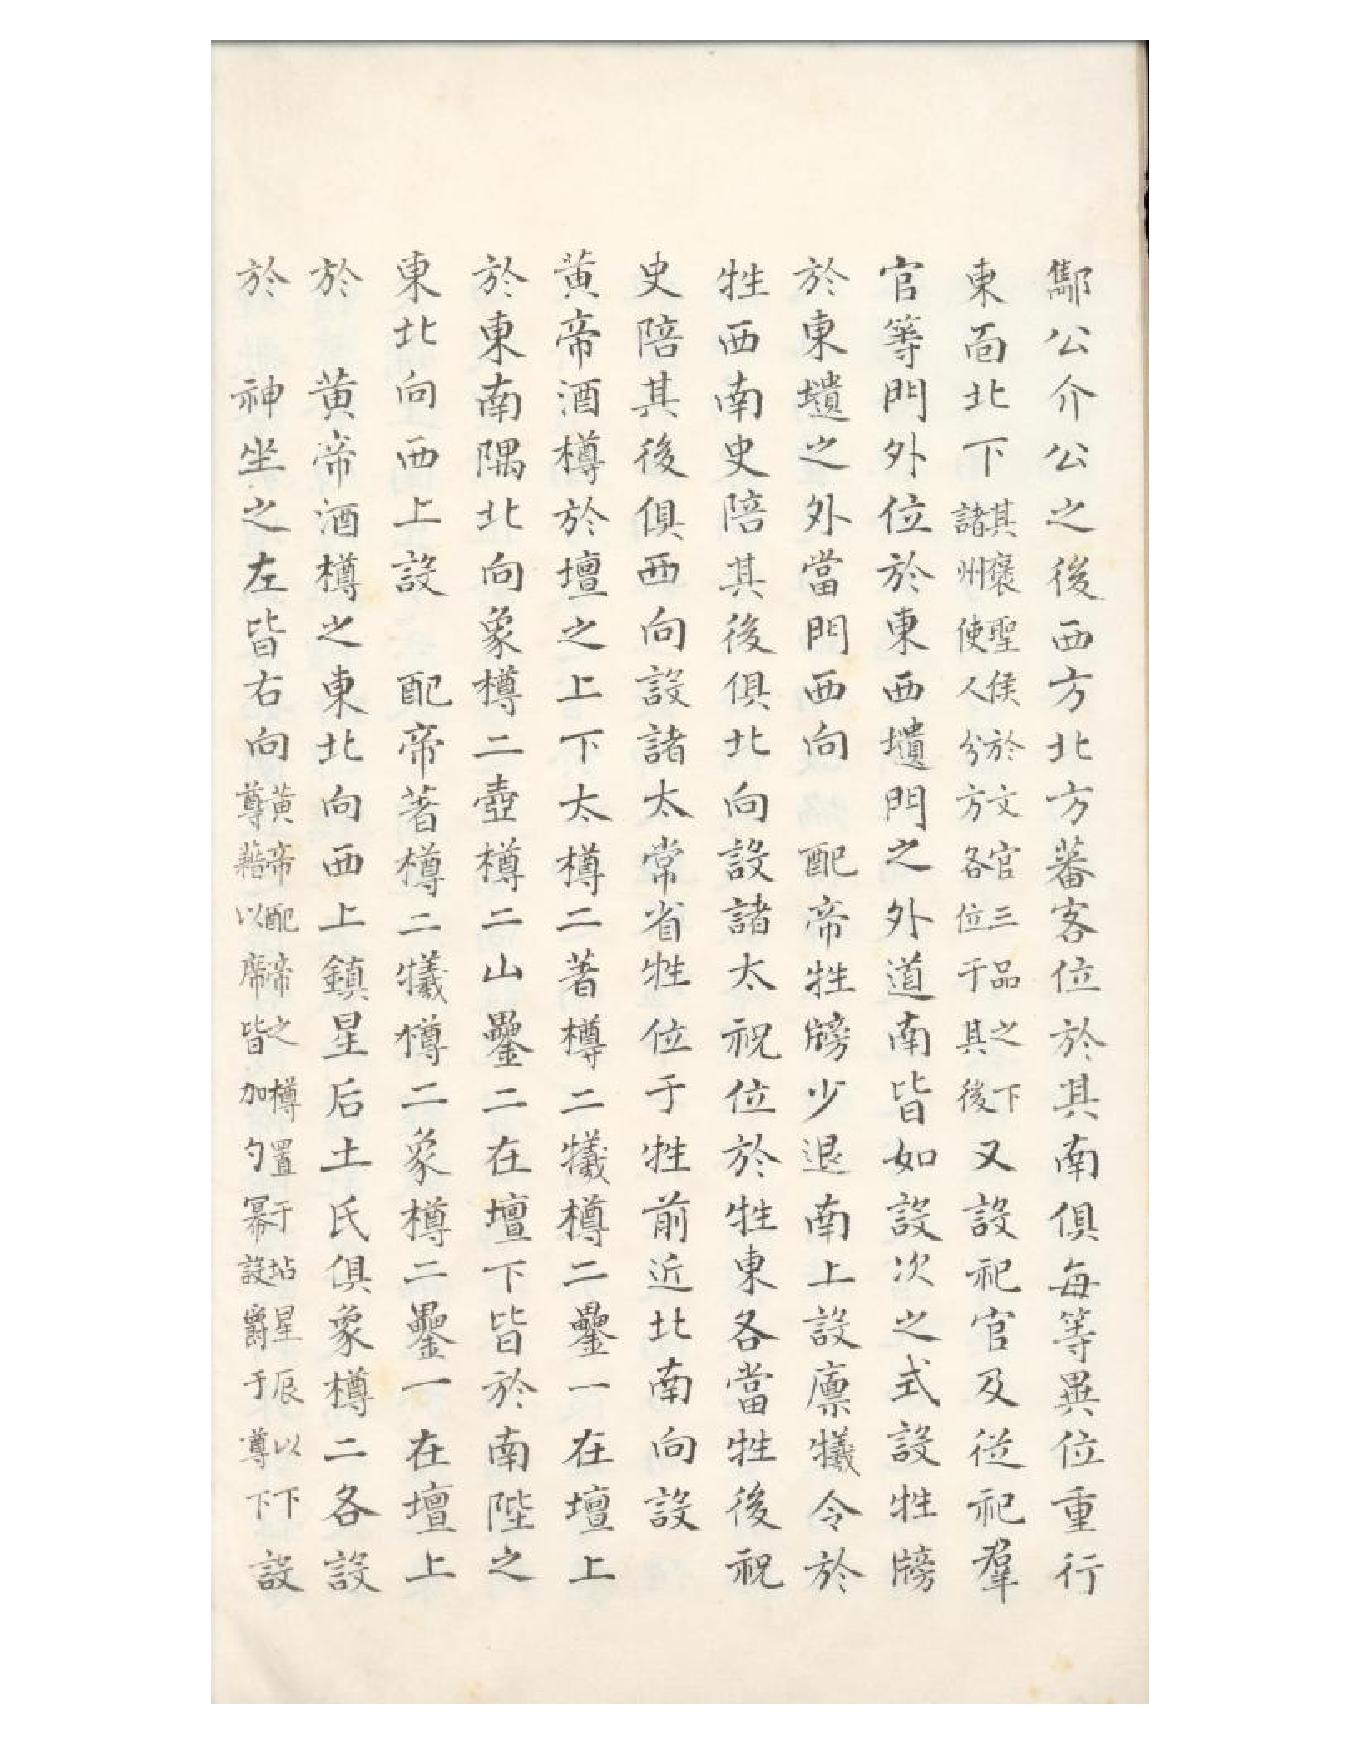 鄅公介公之後西方北方蕃客位於其南俱每等異位重行
東面北下其褒聖侯於文官三品之下諸州使人分方各位于其後又設祀官及從祀羣
官等門外位於東西壝門之外道南皆如設次之式設牲牓
於東壝之外當門西向 配帝牲牓少退南上設廪犧令於
牲西南史陪其後俱北向設諸太祝位於牲東各當牲後祝
史陪其後俱西向設諸太常省牲位于牲前近北南向設
黄帝酒樽於壇之上下太樽二著樽二犧樽二罍一在壇上
於東南隅北向象樽二壺樽二山罍二在壇下皆於南陛之
東北向西上設 配帝著樽二犧樽二象樽二罍一在壇上
於 黄帝酒樽之東北向西上鎮星后土氏俱象樽二各設
於 神坐之左皆右向黄帝配帝之樽置于坫星辰以下尊藉以席皆加勺冪設爵于尊下設